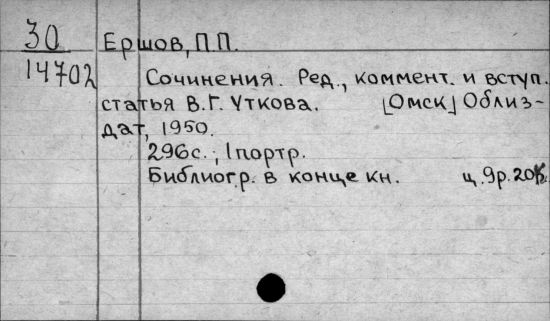 30
14702
Ершов, П.П.
Сочинения. Ред., коммент. и вступ.
статья В.Г. Уткова. [Омск] Облиз-
дат, 1950.
296с.; 1портр.
Библиогр. в конце кн. ц. 9р. 20к.